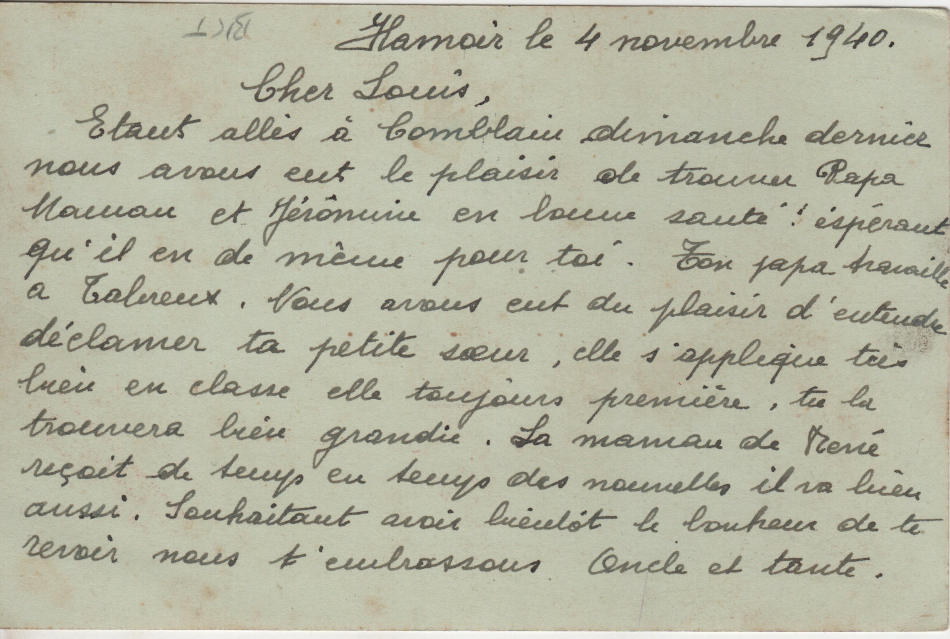 Hamoir le 4 novembre 1940.
Cher Louis,
Etant allés à Comblain dimanche dernier
nous avons eut le plaisir de trouver Papa
Maman et Jérômine en bonne santé ! éspérant
qu'il en de même pour toi. Ton papa travaille
a Tabreux. Nous avons eut du plaisir d'entendre
déclamer ta petite sœur, elle s'applique très
bien en classe elle toujours première, tu la
trouvera bien grandie. La maman de René
reçoit de temps en temps des nouvelles il va bien
aussi. Souhaitant avoir bientôt le bonheur de te
revoir nous t'embrassons Oncle et tante.